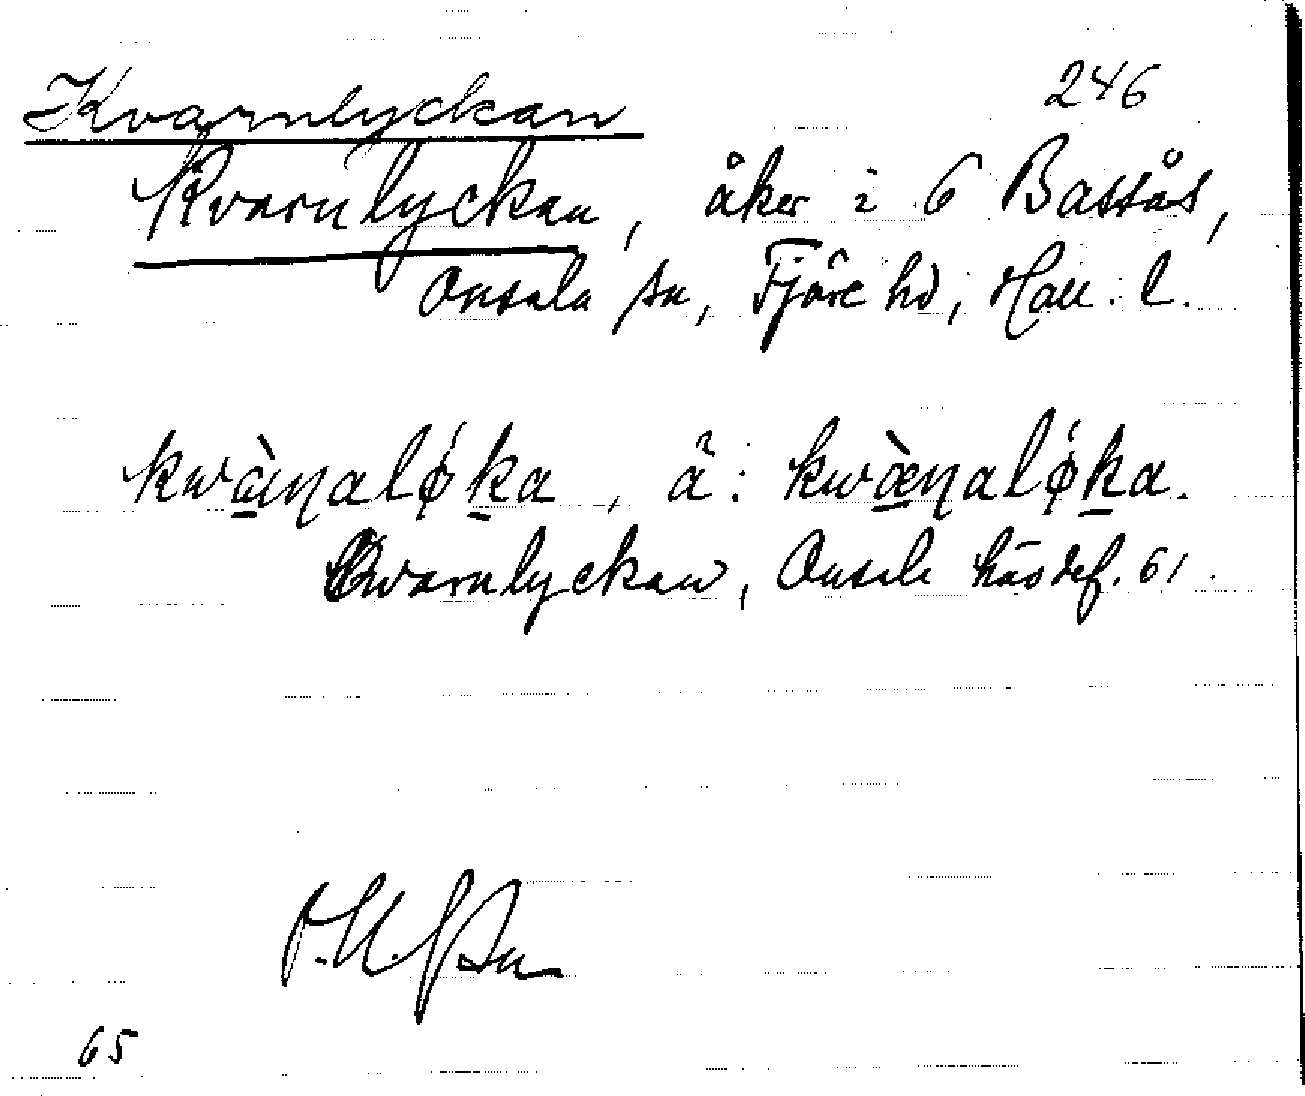 Kvarnlyckan
246
Kvarnlyckan, åker i 6 Bassås,
Onsala sn, Fjäre hd, Hall. l.
kwàɳaløka, ä: kwæ̀ɳaløka.
Qvarnlyckan, Onsala häsdef. 61.
65